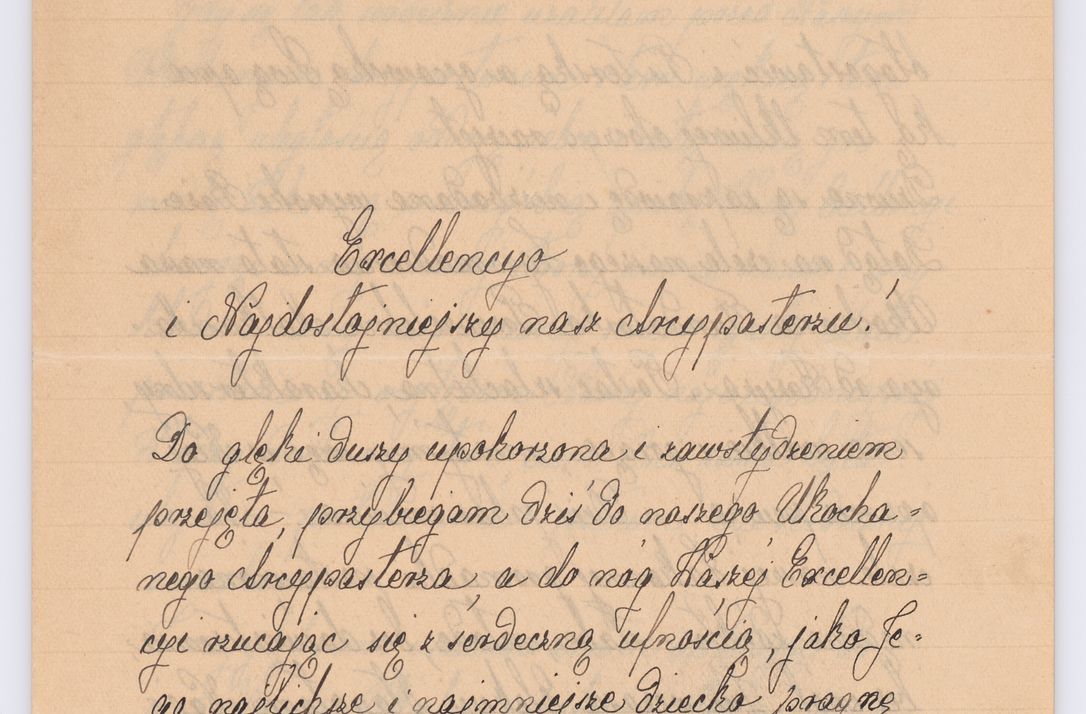 Excellencyo
i Najdostojniejszy nasz Arcypasterzu!
Do głębi duszy upokorzona i zawstydzeniem
przejęta, przybiegam dziś do naszego Ukocha=
nego Arcypasterza, a do nóg Waszej Excellen=
cyi rzucając się z serdeczną ufnością, jako Je=
go najlichsze i najmniejsze dziecko pragnę